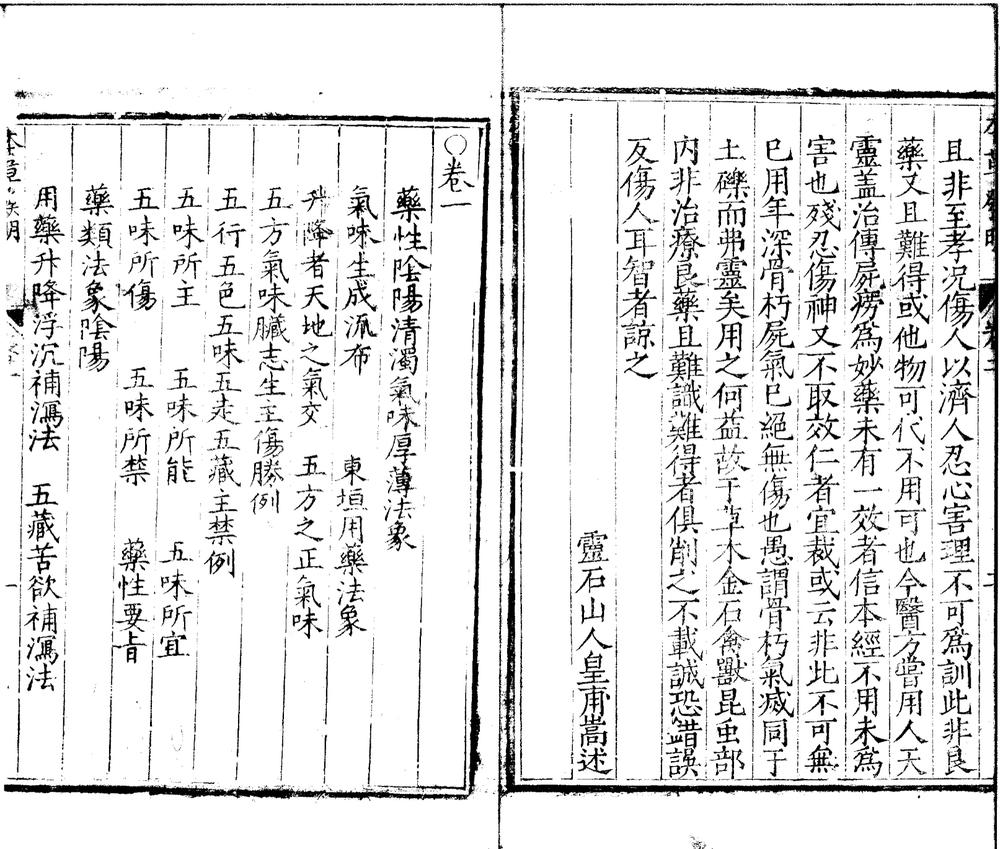 且非至孝况傷人以濟人忍心害理不可爲訓此非良
藥又且難得或他物可代不用可也今醫方嘗用人天
靈盖治傳屍癆爲妙藥未有一效者信本經不用未爲
害也殘忍傷神又不取效仁者宜裁或云非此不可無
已用年深骨朽屍氣已絕無傷也愚謂骨朽氣滅同于
土礫而弗靈矣用之何益故于草木金石禽獸昆虫部
内非治療良藥且難識難得者俱削之不載誠恐錯誤
反傷人耳智者諒之
靈石山人皇甫嵩述
○卷一
藥性陰陽清濁氣味厚薄法象
氣味生成流布 東垣用藥法象
升降者天地之氣交 五方之正氣味
五方氣味臟志生主傷勝例
五行五色五味五走五藏主禁例
五味所主 五味所能 五味所宜
五味所傷 五味所禁 藥性要旨
藥類法象陰陽
用藥升降浮沉補瀉法 五藏苦欲補瀉法